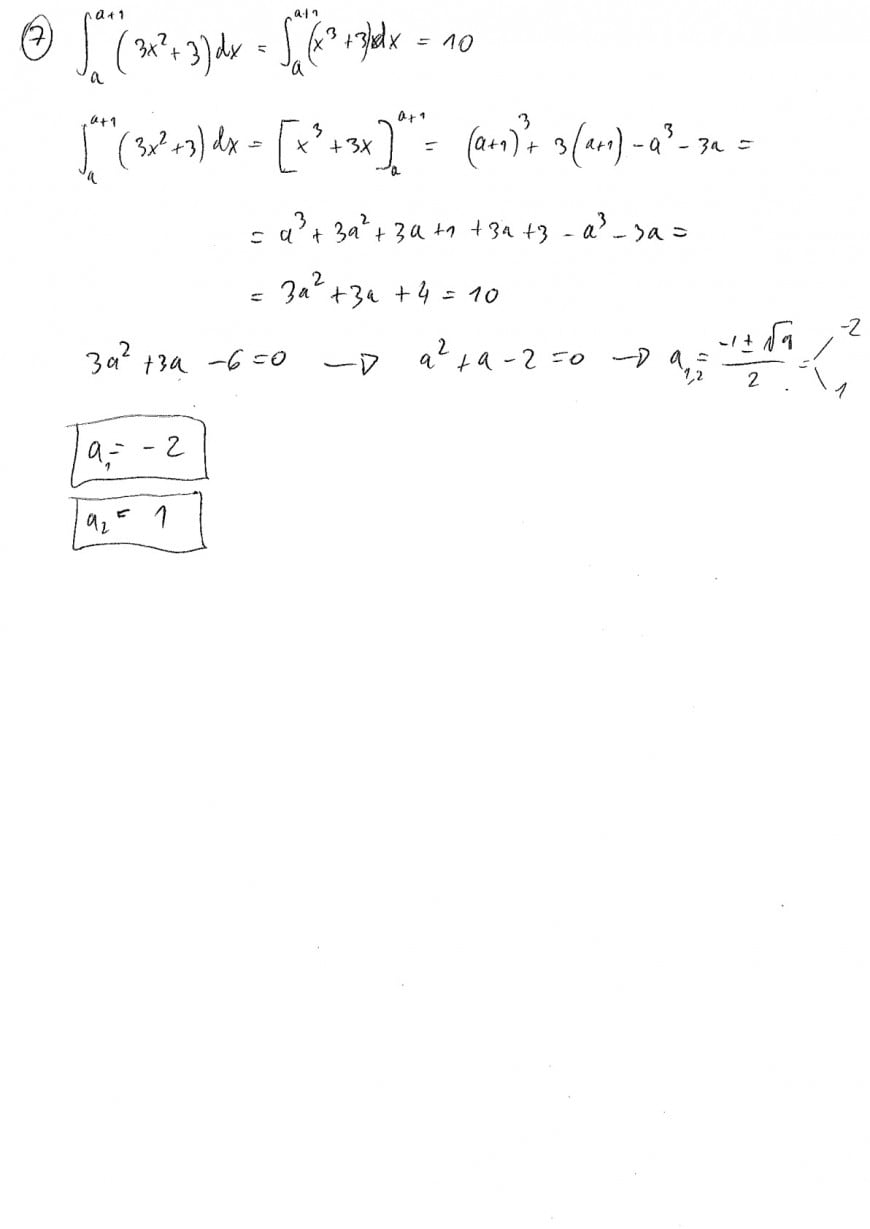 ⑦ ∫ₐᵃ⁺¹ (3x² + 3) dx = ∫ₐᵃ⁺¹ (x³ + 3)dx = 10
∫ₐᵃ⁺¹ (3x² + 3) dx = [x³ + 3x]ₐᵃ⁺¹ = (a+1)³ + 3(a+1) - a³ - 3a =
= a³ + 3a² + 3a + 1 + 3a + 3 - a³ - 3a =
= 3a² + 3a + 4 = 10
3a² + 3a - 6 = 0 → a² + a - 2 = 0 → a₁,₂ = (-1 ± √9)/2 = -2 1
a₁ = -2
a₂ = 1